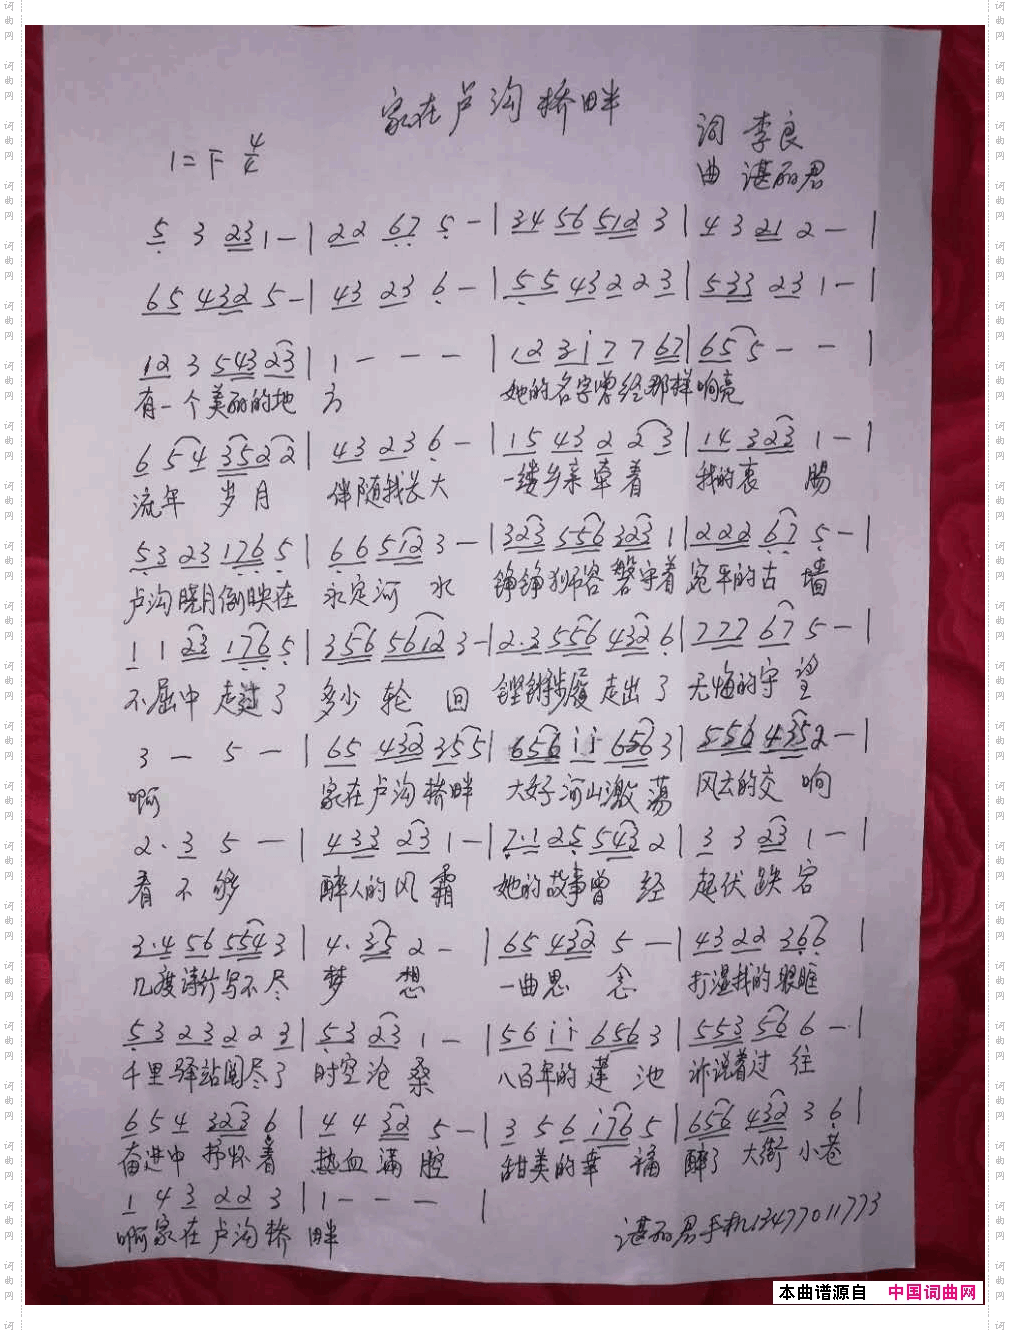 家在卢沟桥畔
词 李良
1=F 4/4
曲 谌丽君
5 3 23 1 - | 22 67 5 - | 34 56 512 3 | 4 3 21 2 - |
65 432 5 - | 43 23 6 - | 55 43 2 2 3 | 533 23 1 - |
12 3 543 23 | 1 - - - | 12 3 1 7 7 67 | 65 5 - - |
有一个美丽的地 方 她的名字曾经那样响亮
6 54 3522 | 43 23 6 - | 15 43 2 23 | 14 323 1 - |
流年 岁月 伴随我长大 一缕乡亲牵着 我的衷 肠
53 23 176 5 | 66 512 3 - | 323 556 323 1 | 222 67 5 - |
卢沟晓月倒映在 永定河 水 铮铮狮容 磐守着 宛平的古 墙
1 1 23 176 5 | 356 5612 3 - | 2·3 556 432 6 | 777 67 5 - |
不屈中 走过了 多少 轮 回 铿锵步履 走出了 无悔的守 望
3 - 5 - | 65 432 355 | 656 11 656 3 | 556 435 2 - |
啊 家在卢沟桥畔 大好河山激荡 风云的交 响
2· 3 5 - | 433 23 1 - | 7·1 25 543 2 | 3 3 23 1 - |
看 不 够 醉人的风 霜 她的故事曾 经 起伏跌宕
3·4 56 554 3 | 4· 35 2 - | 65 432 5 - | 43 22 366 |
几度诗行写不尽 梦 想 一曲思 念 打湿我的眼眶
53 23 2 2 3 | 53 23 1 - | 56 11 656 3 | 553 56 6 - |
千里驿站阅尽了 时空沧 桑 八百年的莲 池 诉说着过 往
6 5 4 323 6 | 4 4 32 5 - | 3 5 6 176 5 | 656 432 3 6 |
奋进中 抒怀着 热血满 腔 甜美的幸 福 醉了 大街小巷
1 4 3 22 3 | 1 - - - |
啊家在卢沟桥 畔
谌丽君手机13477011773
本曲谱源自 中国词曲网